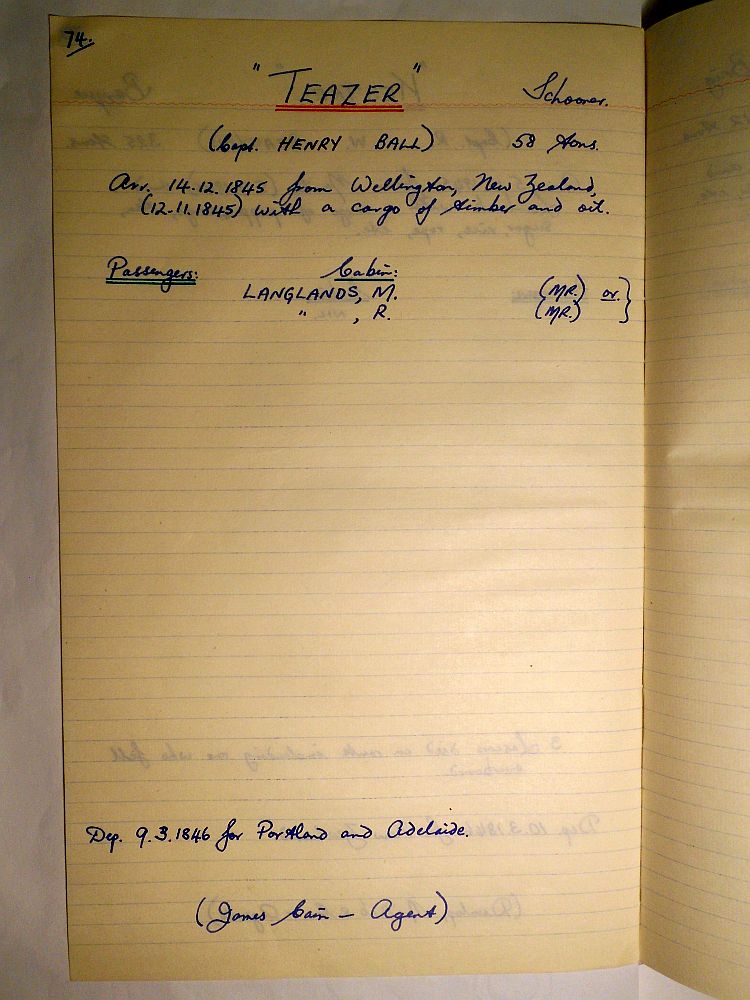 74.
"TEAZER" Schooner.
(Capt. HENRY BALL) 58 tons.
Arr. 14.12.1845 from Wellington, New Zealand,
(12.11.1845) with a cargo of timber and oil.
Passengers: Cabin:
LANGLANDS, M. (MR.) or }
" , R. (MR.)
Dep. 9.3.1846 for Portland and Adelaide.
(James Cain - Agent)